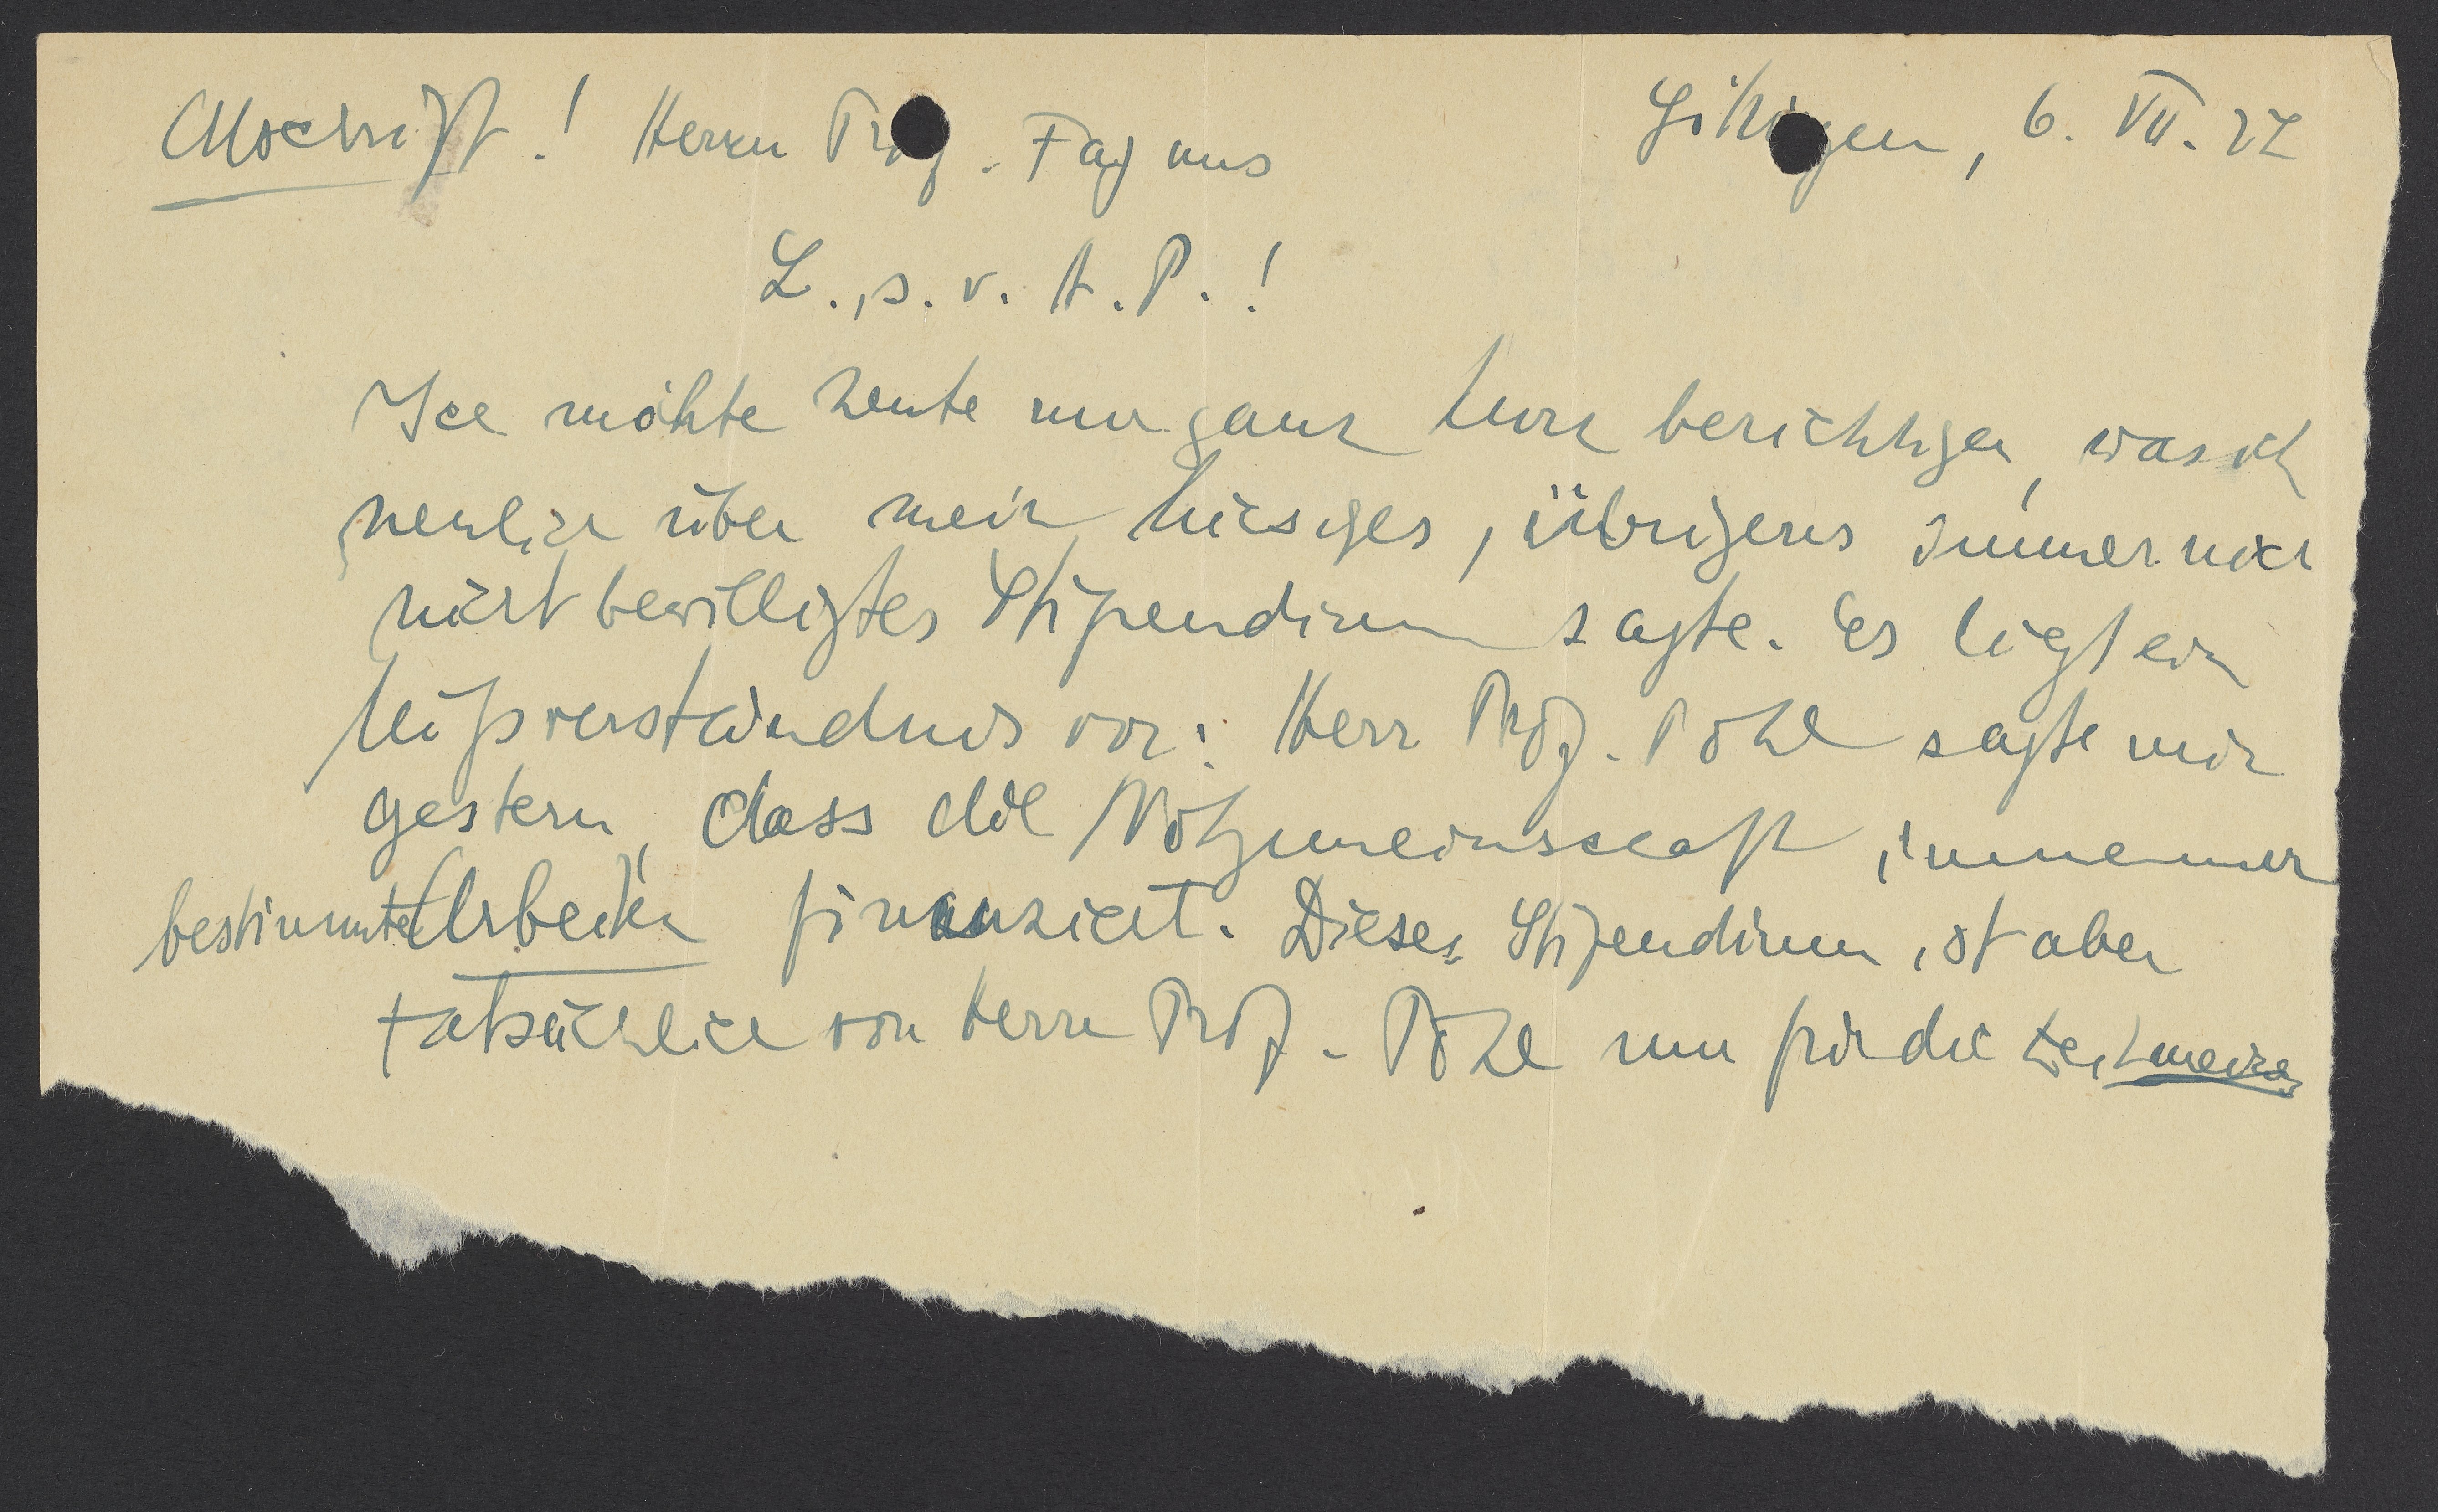 Abschrift! Herrn Prof. Fajans Göttingen, 6. VII. 32
L., s. v. H. P.!
Ich möchte heute nur ganz kurz berichtigen, was ich
neulich über mein hiesiges, übrigens immer noch
nicht bewilligtes Stipendium sagte. Es liegt ein
Mißverständnis vor: Herr Prof. Pohl sagte mir
gestern, dass die Notgemeinschaft immer nur
bestimmte Arbeiten finanziert. Dieses Stipendium ist aber
tatsächlich von Herrn Prof. Pohl nur für die Zeit meines